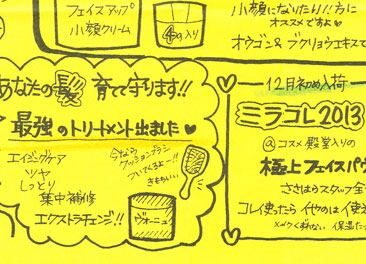 フェイスアップ
小顔クリーム
④個入り
小顔になりたい!!方に
オススメですよ♡
オウゴン&ブクリョウエキスで
あなたの髪育て守ります!!
最強のトリートメント出ました♥
エイジングケア
ツヤ
しっとり
集中補修
エクストラチェンジ!!
今なら
クッションブラシ
ついてるよー!!
きもちいい
ヴォーニュ
12月初め入荷
ミラコレ2013
@コスメ殿堂入りの
極上フェイスパウ
ささはらスタッフ全
コレ使ったらイヤのは使え
メイクくずれない 保湿た